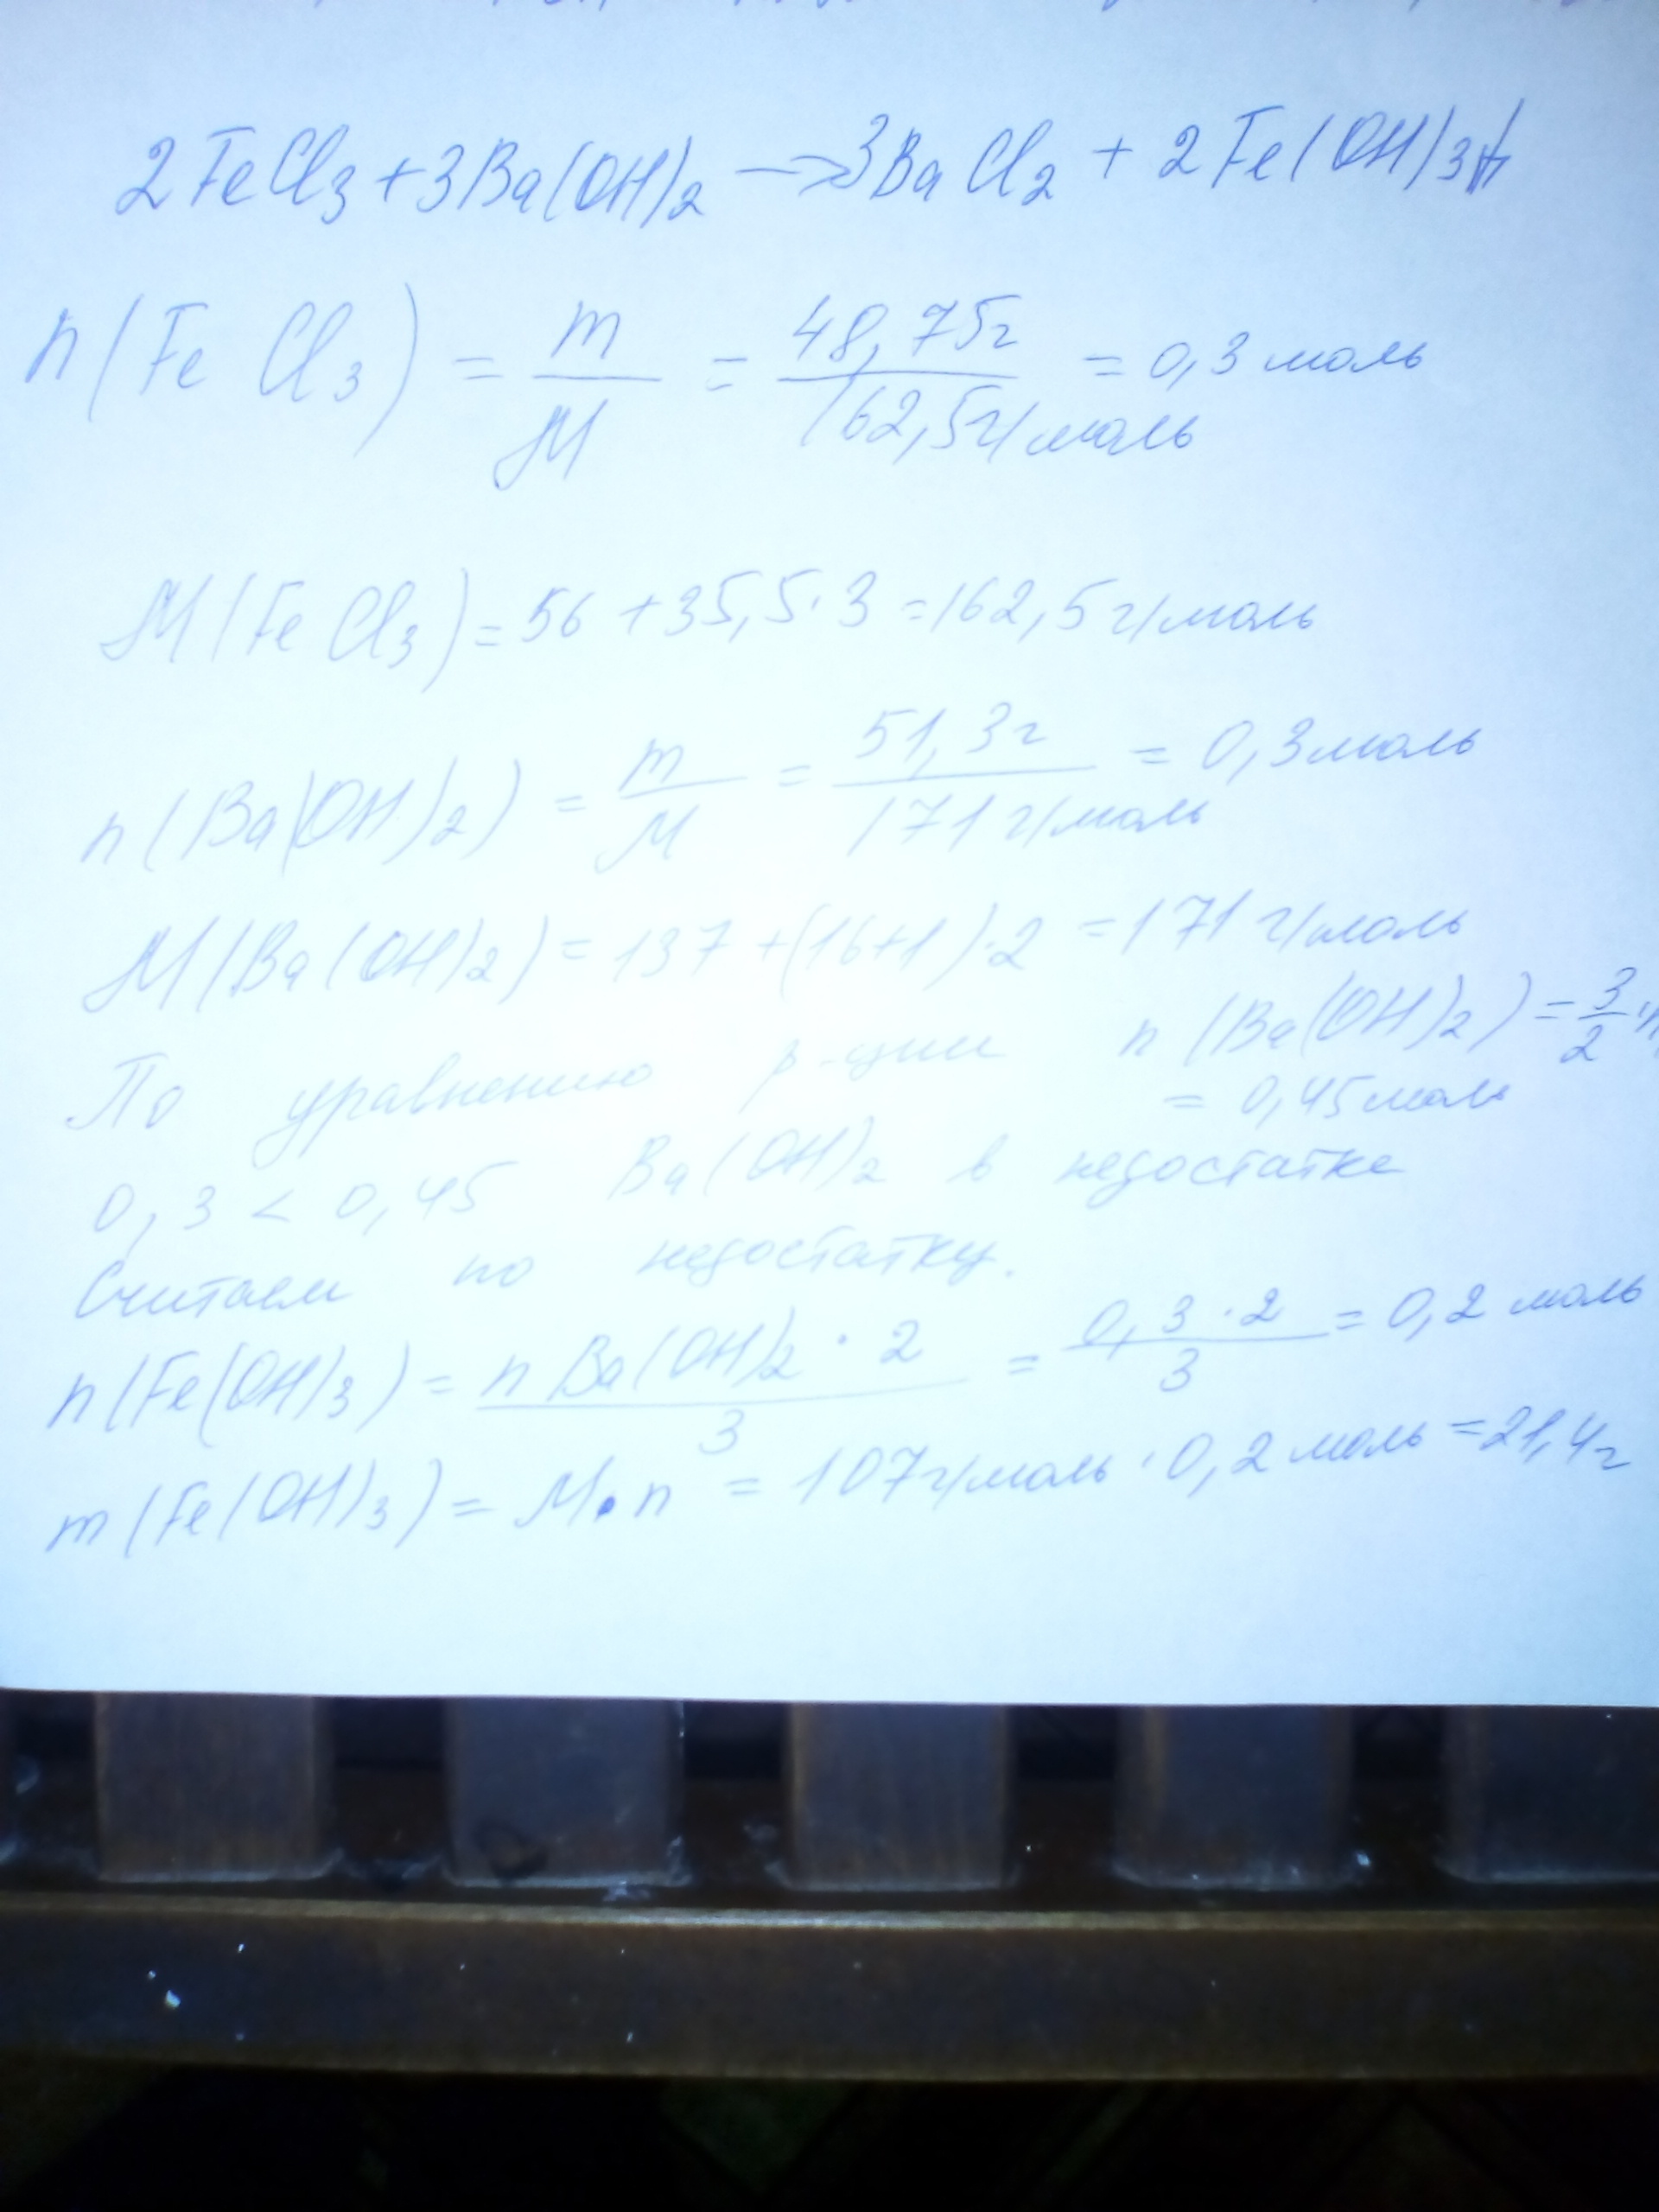 2FeCl3 + 3Ba(OH)2 → 3BaCl2 + 2Fe(OH)3↓
n(FeCl3) = m/M = 48,75г/162,5г/моль = 0,3 моль
M(FeCl3) = 56 + 35,5·3 = 162,5 г/моль
n(Ba(OH)2) = m/M = 51,3г/171 г/моль = 0,3 моль
M(Ba(OH)2) = 137 + (16+1)·2 = 171 г/моль
По уравнению р-ции n(Ba(OH)2) = 3/2 ·n
= 0,45 моль
0,3 < 0,45 Ba(OH)2 в недостатке
Считаем по недостатку.
n(Fe(OH)3) = n Ba(OH)2 · 2/3 = 0,3 · 2/3 = 0,2 моль
m(Fe(OH)3) = M·n = 107 г/моль · 0,2 моль = 21,4г